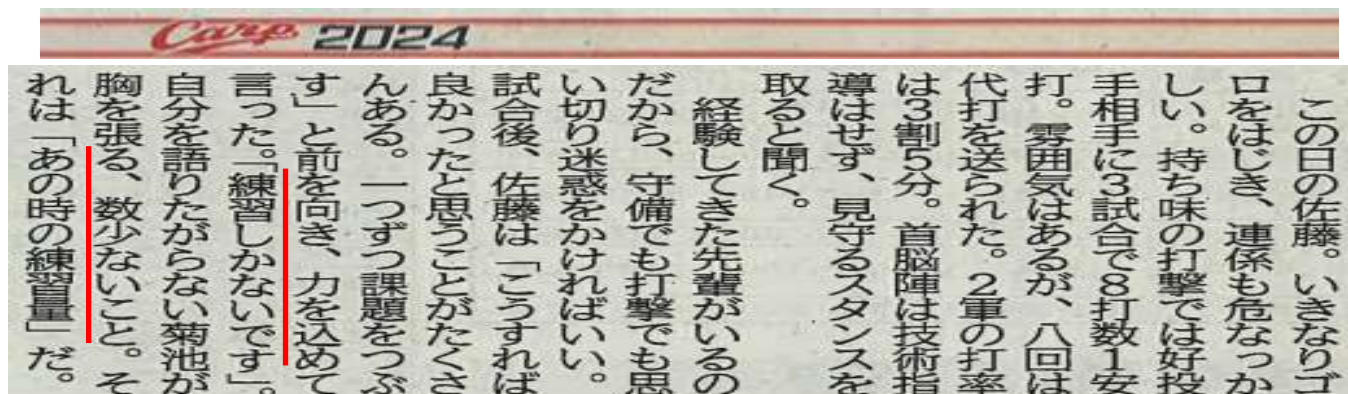 Carp 2024
この日の佐藤。いきなりゴ
ロをはじき、連係も危なっか
しい。持ち味の打撃では好投
手相手に3試合で8打数1安
打。雰囲気はあるが、八回は
代打を送られた。2軍の打率
は3割5分。首脳陣は技術指
導はせず、見守るスタンスを
取ると聞く。
経験してきた先輩がいるの
だから、守備でも打撃でも思
い切り迷惑をかければいい。
試合後、佐藤は「こうすれば
良かったと思うことがたくさ
んある。一つずつ課題をつぶ
す」と前を向き、力を込めて
言った。「練習しかないです」。
自分を語りたがらない菊池が
胸を張る、数少ないこと。そ
れは「あの時の練習量」だ。